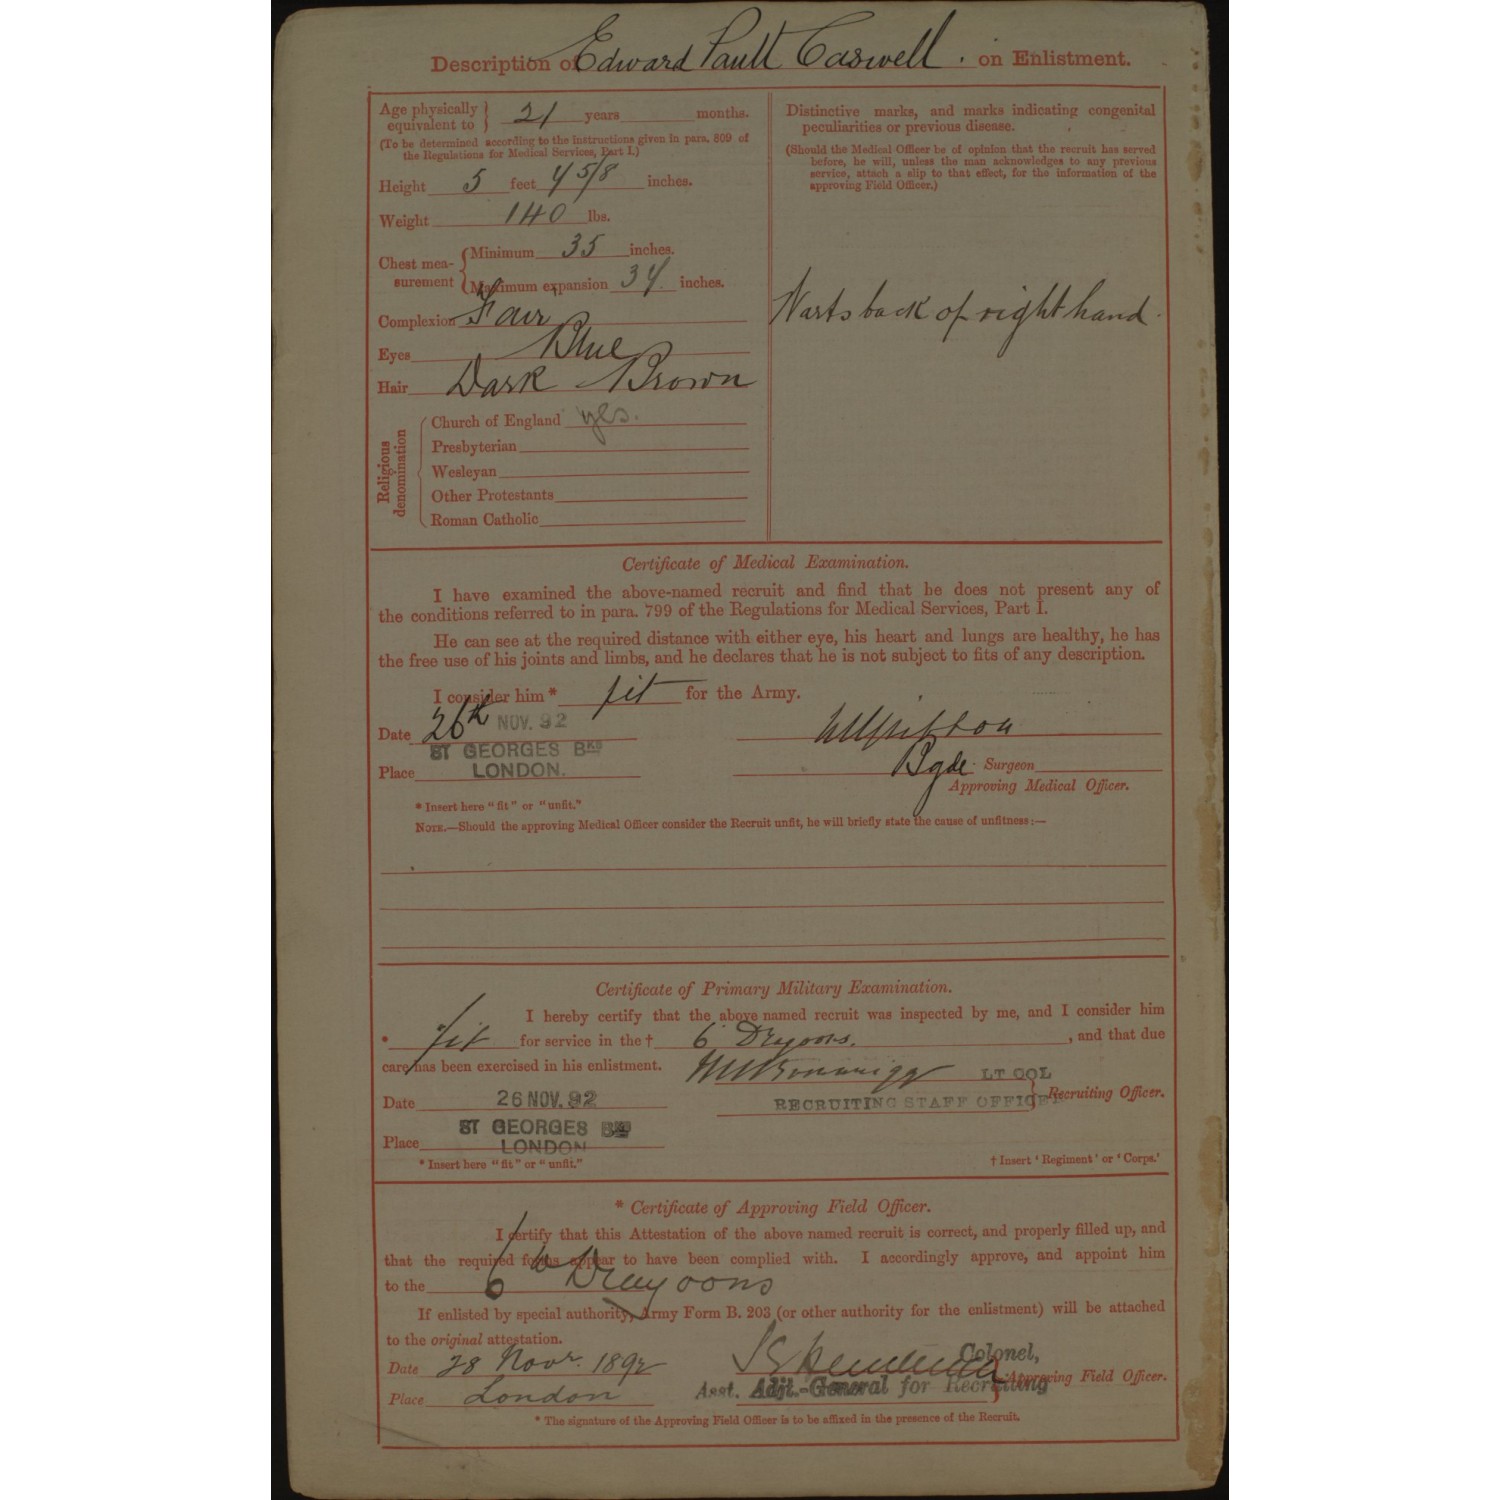 Description of Edward Pault Caswell. on Enlistment.
Age physically equivalent to } 21 years months.
(To be determined according to the instructions given in para. 809 of
the Regulations for Medical Services, Part I.)
Height 5 feet 4 5/8 inches.
Weight 140 lbs.
Chest measurement { Minimum 35 inches.
Maximum expansion 34 inches.
Complexion Fair
Eyes Blue
Hair Dark Brown
Religious denomination
Church of England yes.
Presbyterian
Wesleyan
Other Protestants
Roman Catholic
Distinctive marks, and marks indicating congenital
peculiarities or previous disease.
(Should the Medical Officer be of opinion that the recruit has served
before, he will, unless the man acknowledges to any previous
service, attach a slip to that effect, for the information of the
approving Field Officer.)
Warts back of right hand.
Certificate of Medical Examination.
I have examined the above-named recruit and find that he does not present any of
the conditions referred to in para. 799 of the Regulations for Medical Services, Part I.
He can see at the required distance with either eye, his heart and lungs are healthy, he has
the free use of his joints and limbs, and he declares that he is not subject to fits of any description.
I consider him * fit for the Army.
Date 26th NOV. 92
Place ST GEORGES BKS
LONDON.
Bgde Surgeon
Approving Medical Officer.
* Insert here "fit" or "unfit."
NOTE.—Should the approving Medical Officer consider the Recruit unfit, he will briefly state the cause of unfitness:—
Certificate of Primary Military Examination.
I hereby certify that the above named recruit was inspected by me, and I consider him
* fit for service in the † 6 Dragoons. , and that due
care has been exercised in his enlistment.
LT COL
Date 26 NOV. 92
RECRUITING STAFF OFFICER } Recruiting Officer.
Place ST GEORGES BKS
LONDON
* Insert here "fit" or "unfit."
† Insert 'Regiment' or 'Corps.'
* Certificate of Approving Field Officer.
I certify that this Attestation of the above named recruit is correct, and properly filled up, and
that the required forms appear to have been complied with. I accordingly approve, and appoint him
to the 6th Dragoons
If enlisted by special authority, Army Form B. 203 (or other authority for the enlistment) will be attached
to the original attestation.
Date 28 Novr. 1892
Colonel,
Asst. Adjt.-General for Recruiting } Approving Field Officer.
Place London
* The signature of the Approving Field Officer is to be affixed in the presence of the Recruit.